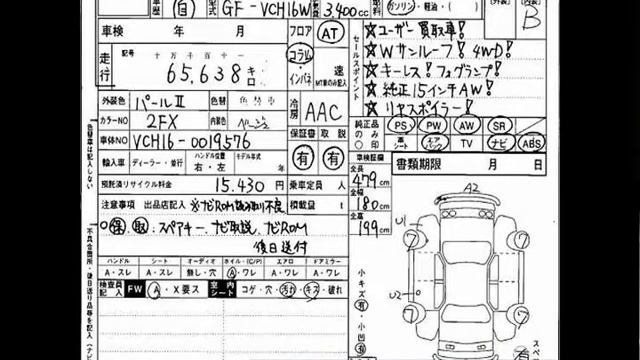 歴 自 型式 GF-VCH16W 3,400cc ガソリン・軽油・( ) 外装 内装 B
車検 年 月 フロア AT
☆ユーザー買取車!
☆Wサンルーフ! 4WD!
☆キーレス! フォグランプ!
☆純正15インチAW!
☆リヤスポイラー!
セールスポイント
走行 記号 十万 千 百 十 一
65,638キロ
コラム・インパネ 速 MT車のみ記入
外装色 パールⅡ 色替
カラーNO 2FX 内装色 ベージュ
冷房 AAC
純正品のみ○印 PS PW AW SR
エアバッグ TV ナビ ABS
車体NO VCH16-0019576
保証書 取説 有 有
輸入車 ディーラー・並行 ハンドル位置 右・左 モデル年式
車検証欄 書類期限 月 日
預託済リサイクル料金 15.430円 乗車定員 人
全長 479cm
全幅 180cm
全高 199cm
注意事項 出品店記入 ※ナビROM読み取り不良 積載量 t
保、取、スペアキー、ナビ取説、ナビROM
後日送付
ハンドル シート オーディオ ホイル・(C/P) エアロ ドアミラー
A・スレ A・スレ 無し・穴 A・ワレ A・ワレ A・ワレ
検査員記入 FW A・X要ス 室内シート コゲ・穴 汚れ・キズ・破れ
小キズ有 小凹有
A2
U1
U2
7 7 7 7
色替車は記入しない